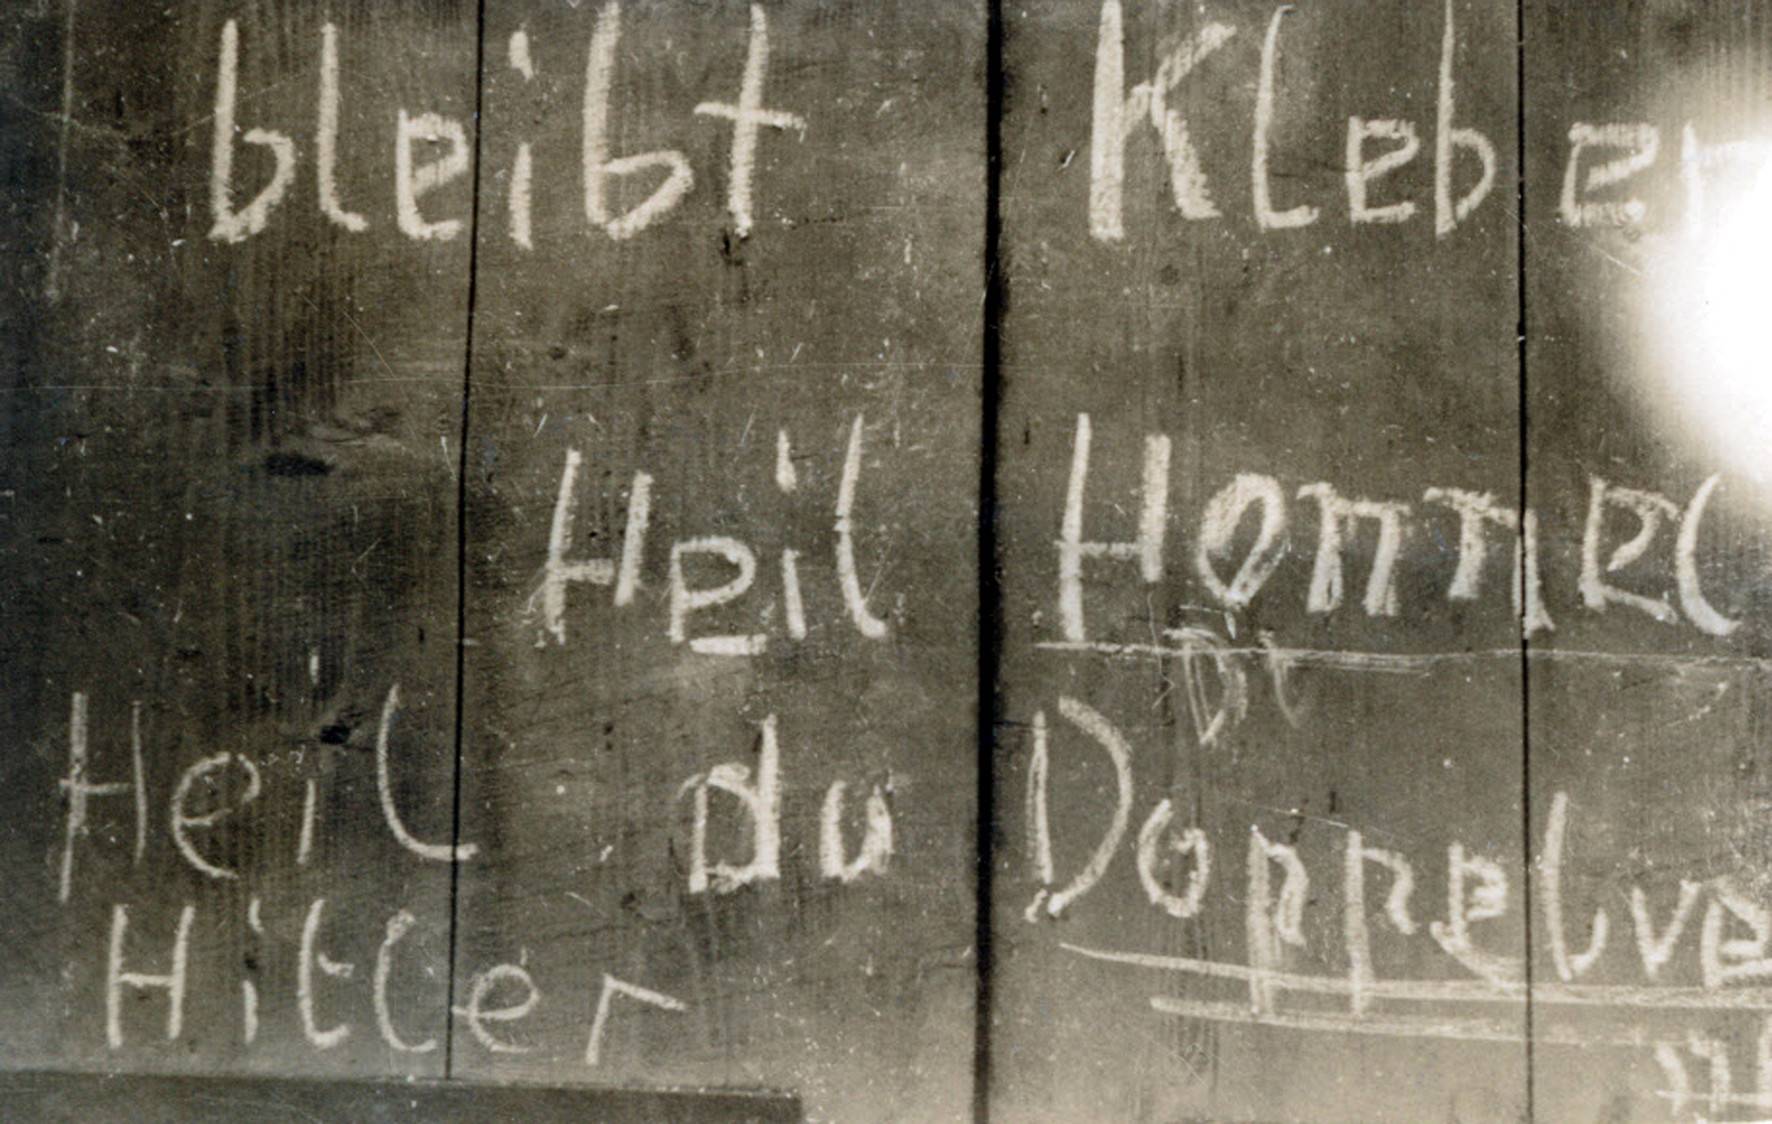 bleibt Kleber
Heil Hommel
Heil du Doppelve
Hitler